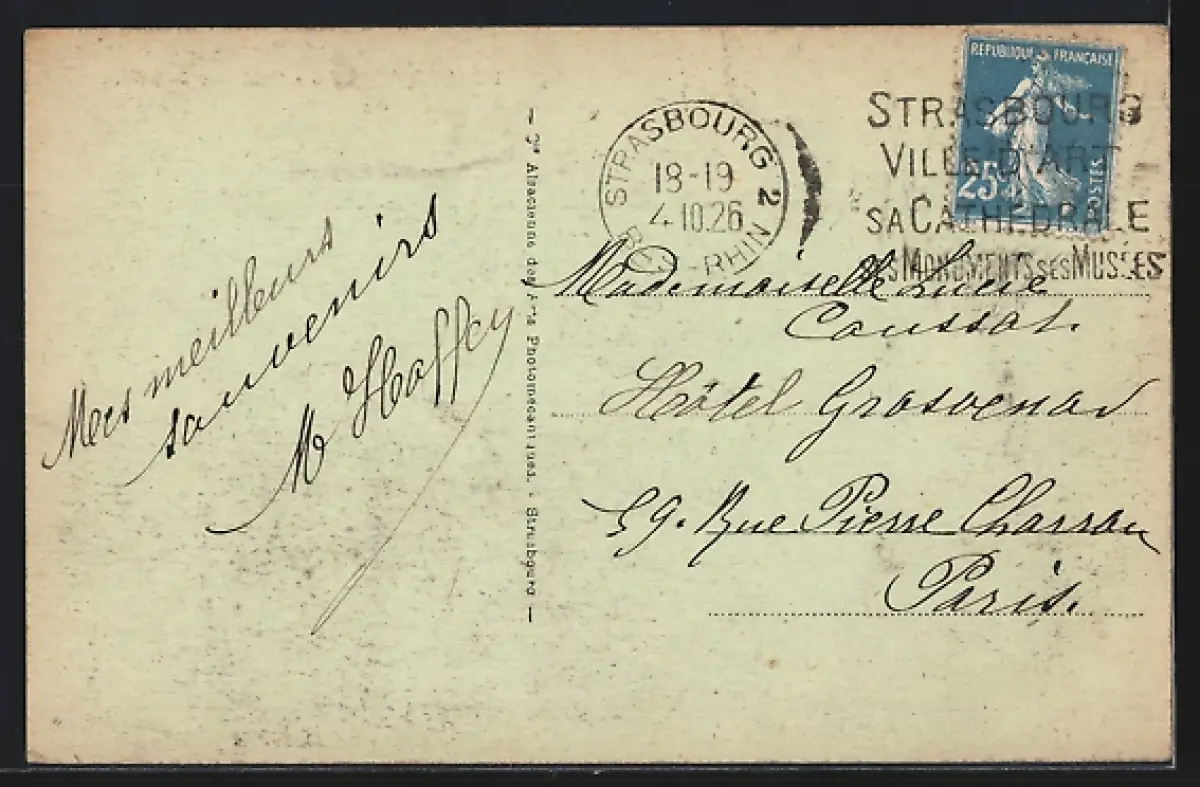 Mes meilleurs
souvenirs
M Haffey
- Sté Alsacienne des Arts Photomécaniques. - Strasbourg -
STRASBOURG 2
18-19
4.10.26
BAS-RHIN
STRASBOURG
VILLE D'ART
SA CATHEDRALE
SES MONUMENTS SES MUSEES
REPUBLIQUE FRANÇAISE
25c
POSTES
Mademoiselle Lucie
Coussat.
Hôtel Grosvenor
59. Rue Pierre Charron
Paris.